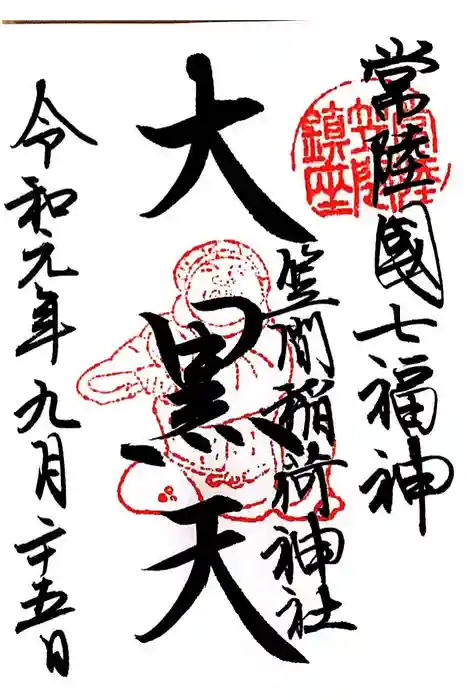 常陸國七福神
常陸
笠間
鎮座
笠間稲荷神社
大黒天
令和元年九月二十五日